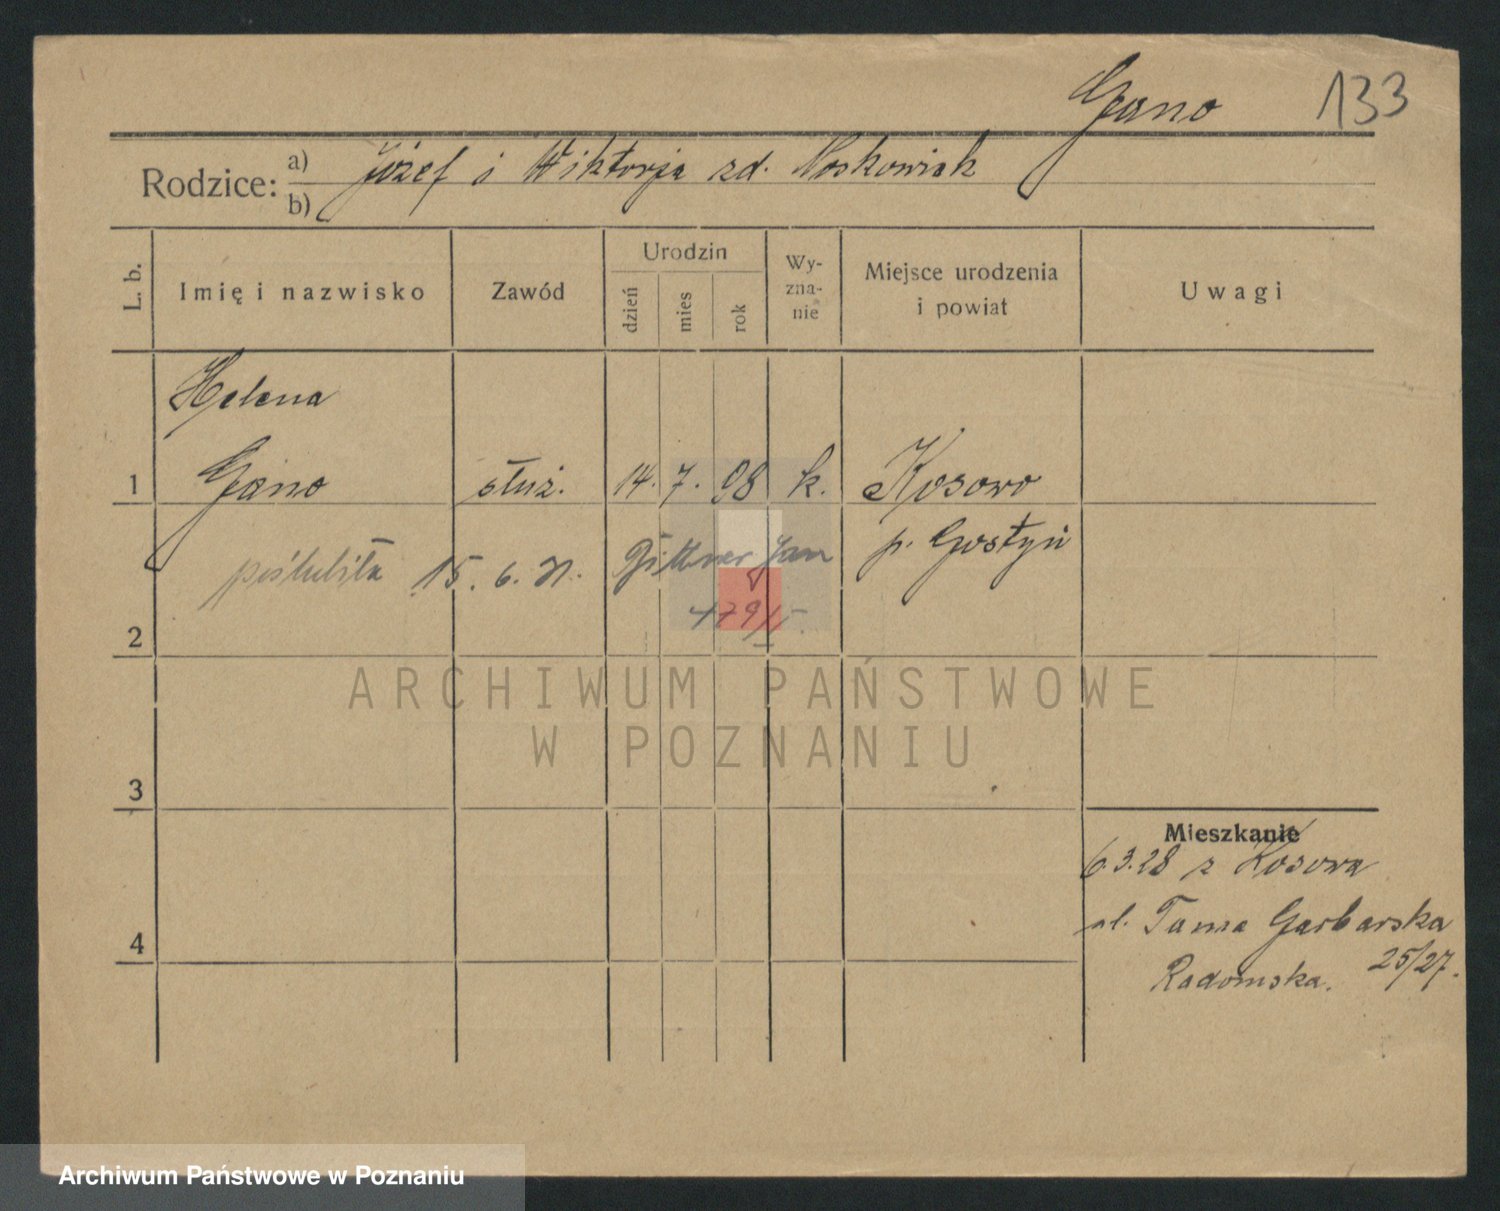 Gano 133
Rodzice: a) Józef i Wiktorja zd. Noskowiak
b)
L. b. Imię i nazwisko Zawód Urodzin dzień mies rok Wy-zna-nie Miejsce urodzenia i powiat Uwagi
Helena
1 Gano służ. 14. 7. 98 k. Kosowo
p. Gostyń
poślubiła 15. 6. 31. Gittner Jan
2
ARCHIWUM PAŃSTWOWE
W POZNANIU
3
Mieszkanie
6.3.28 z Kosowa
ul. Tama Garbarska
25/27.
Radomska.
4
Archiwum Państwowe w Poznaniu